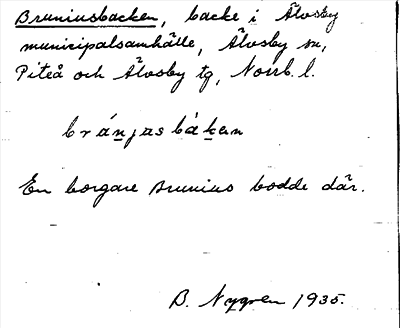 Bruniusbacken, backe i Älvsby
municipalsamhälle, Älvsby sn,
Piteå och Älvsby tg, Norrb. l.
bránjasbàken
En borgare Brunius bodde där.
B. Nygren 1935.